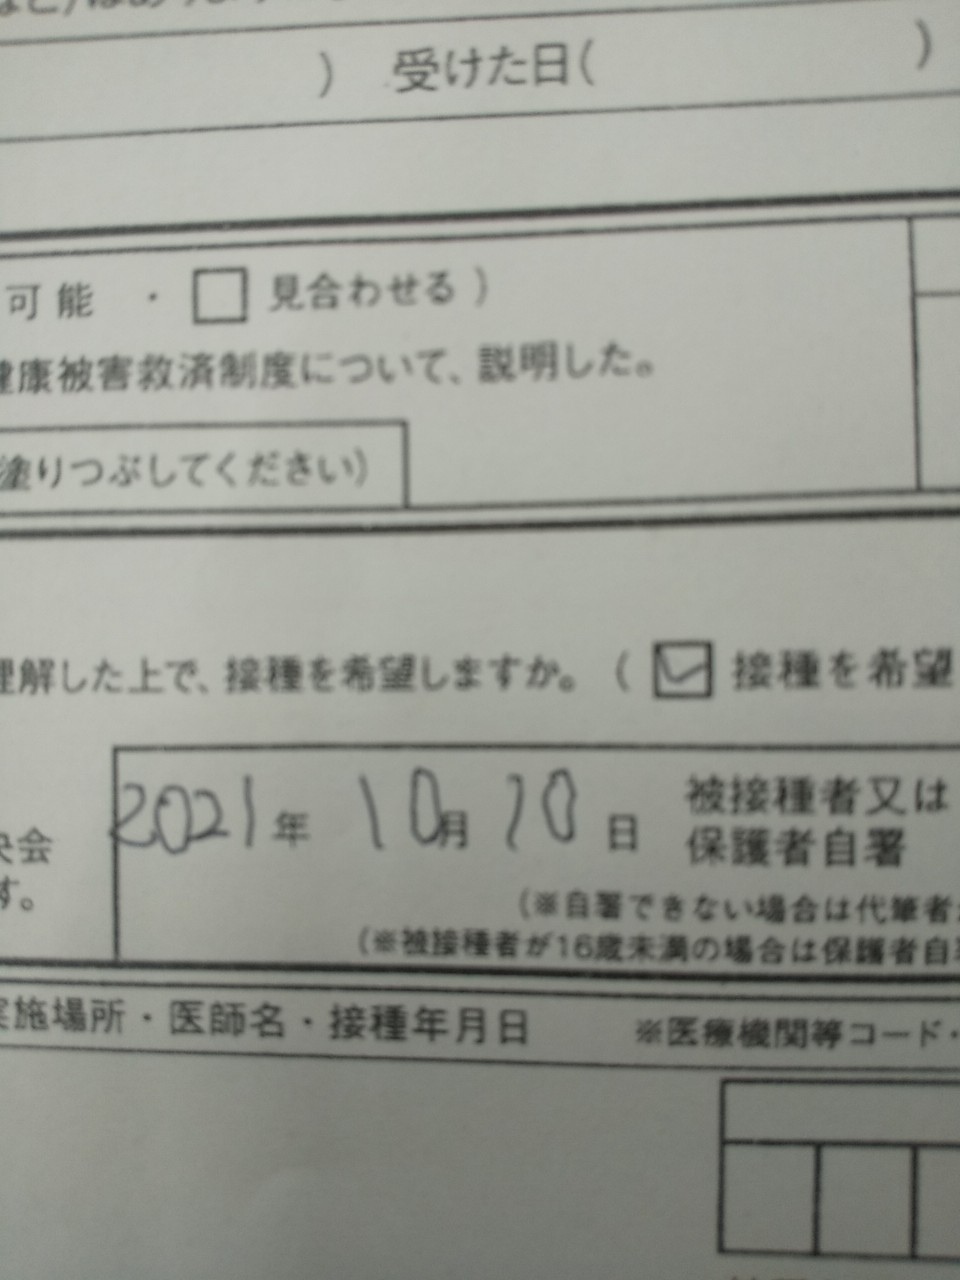 ) 受けた日( )
可能 ・ □ 見合わせる )
健康被害救済制度について、説明した。
塗りつぶしてください)
理解した上で、接種を希望しますか。( ☑ 接種を希望
2021年 10月 10日 被接種者又は
保護者自署
会
す。
(※自署できない場合は代筆者
(※被接種者が16歳未満の場合は保護者自署
実施場所・医師名・接種年月日 ※医療機関等コード・